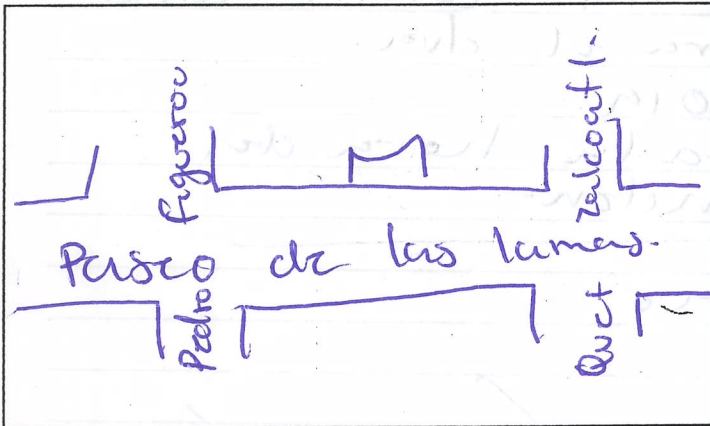 Pedro Figueroa
Paseo de las lomas.
Quetzalcoatl.